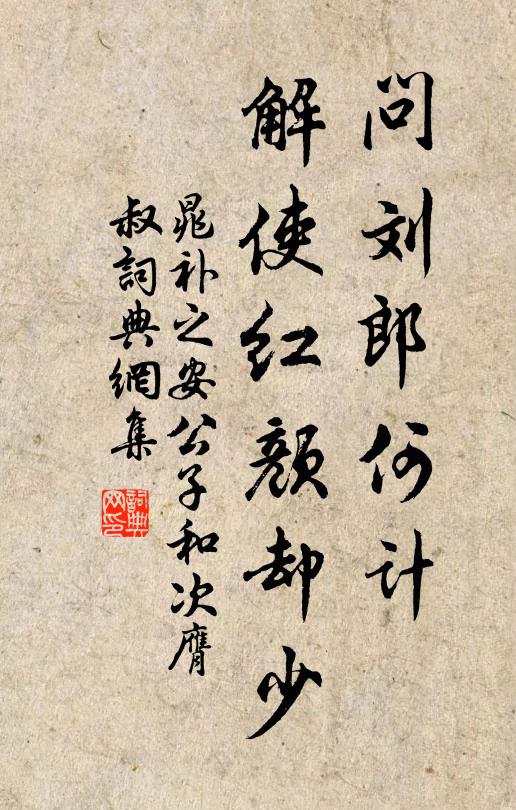 问刘郎何计
解使红颜却少
晁补之安公子和次膺
叔詞典網集
詞典网印